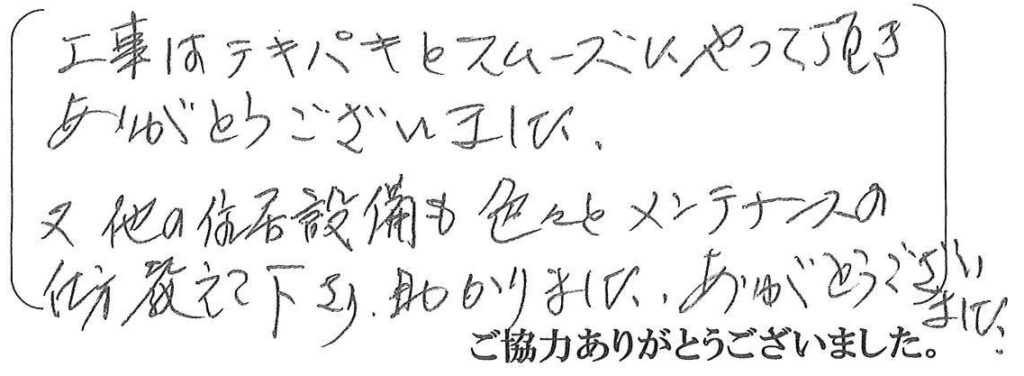 工事はテキパキとスムーズにやって頂き
ありがとうございました。
又他の住居設備も色々とメンテナンスの
仕方教えて下さり、助かりました、ありがとうござい
ました。
ご協力ありがとうございました。